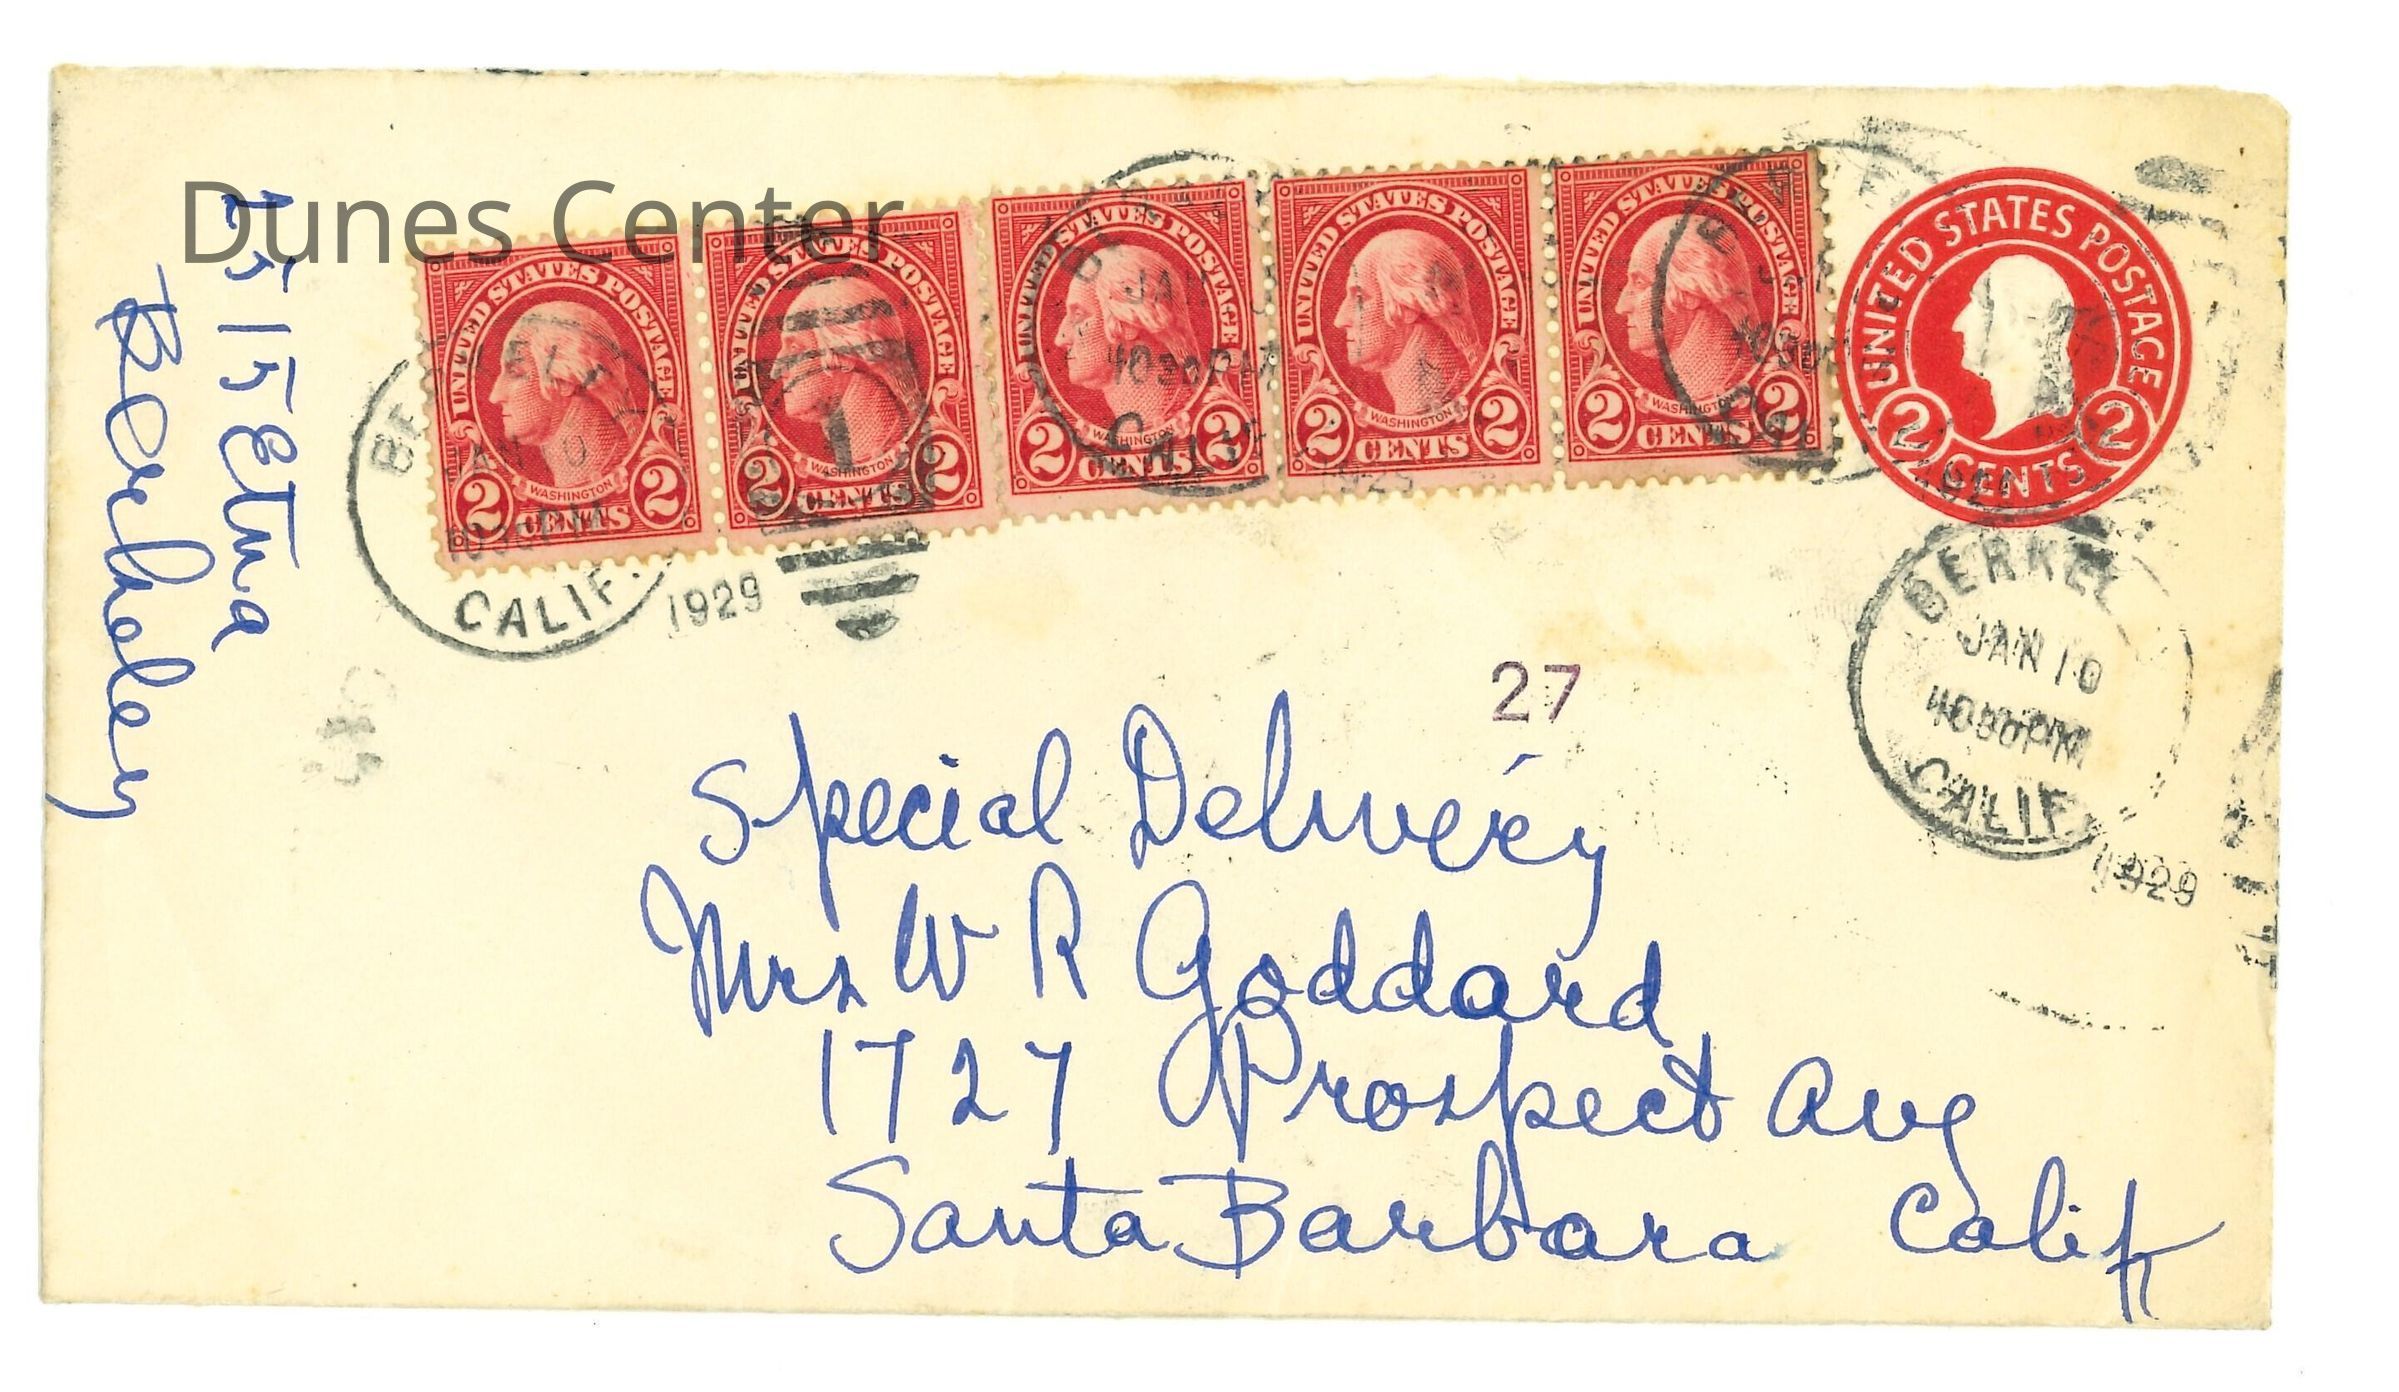 Dunes Center
2515 Etna
Berkeley
UNITED STATES POSTAGE
WASHINGTON
2 CENTS 2
UNITED STATES POSTAGE
WASHINGTON
2 CENTS 2
UNITED STATES POSTAGE
WASHINGTON
2 CENTS 2
UNITED STATES POSTAGE
WASHINGTON
2 CENTS 2
UNITED STATES POSTAGE
WASHINGTON
2 CENTS 2
UNITED STATES POSTAGE
2 CENTS 2
JAN
1030PM
CALIF.
1929
BERKEL
JAN 10
1030PM
CALIF
1929
27
Special Delivery
Mrs W R Goddard
1727 Prospect Ave
Santa Barbara Calif